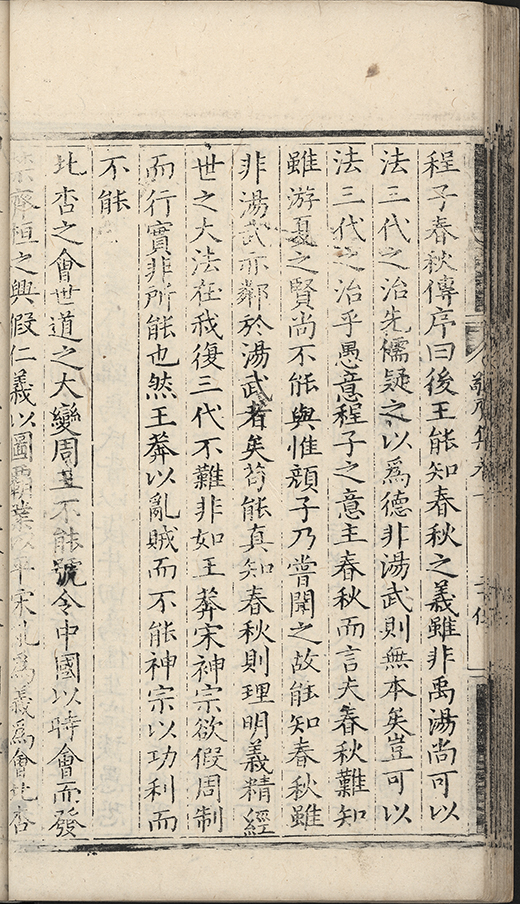 程子春秋傳序曰後王能知春秋之義雖非禹湯尚可以
法三代之治先儒疑之以爲德非湯武則無本矣豈可以
法三代之治乎愚意程子之意主春秋而言夫春秋難知
雖游夏之賢尚不能與惟顔子乃嘗聞之故能知春秋雖
非湯武亦鄰於湯武者矣苟能真知春秋則理明義精經
世之大法在我復三代不難非如王莽宋神宗欲假周制
而行實非所能也然王莽以亂賊而不能神宗以功利而
不能
北杏之會世道之大變周王不能號令中國以時會而發
禁齊桓之興假仁義以圖霸業以平宋亂爲義爲會北杏